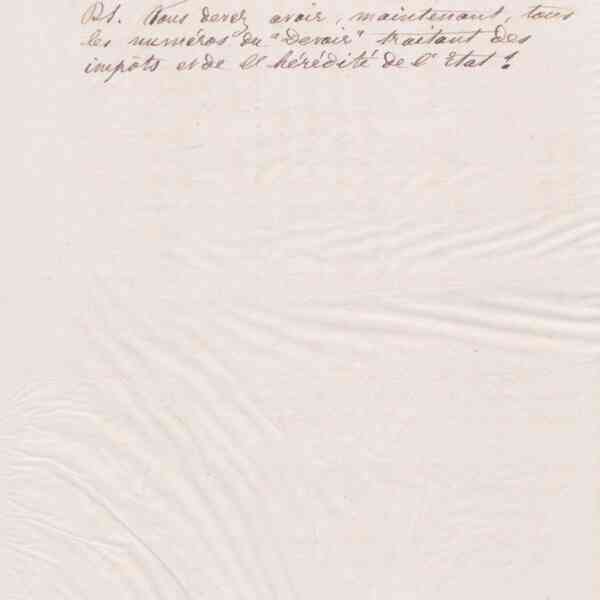 P.S. Vous devez avoir, maintenant, tous
les numéros du "Devoir" traitant des
impôts et de l'hérédité de l'Etat ?